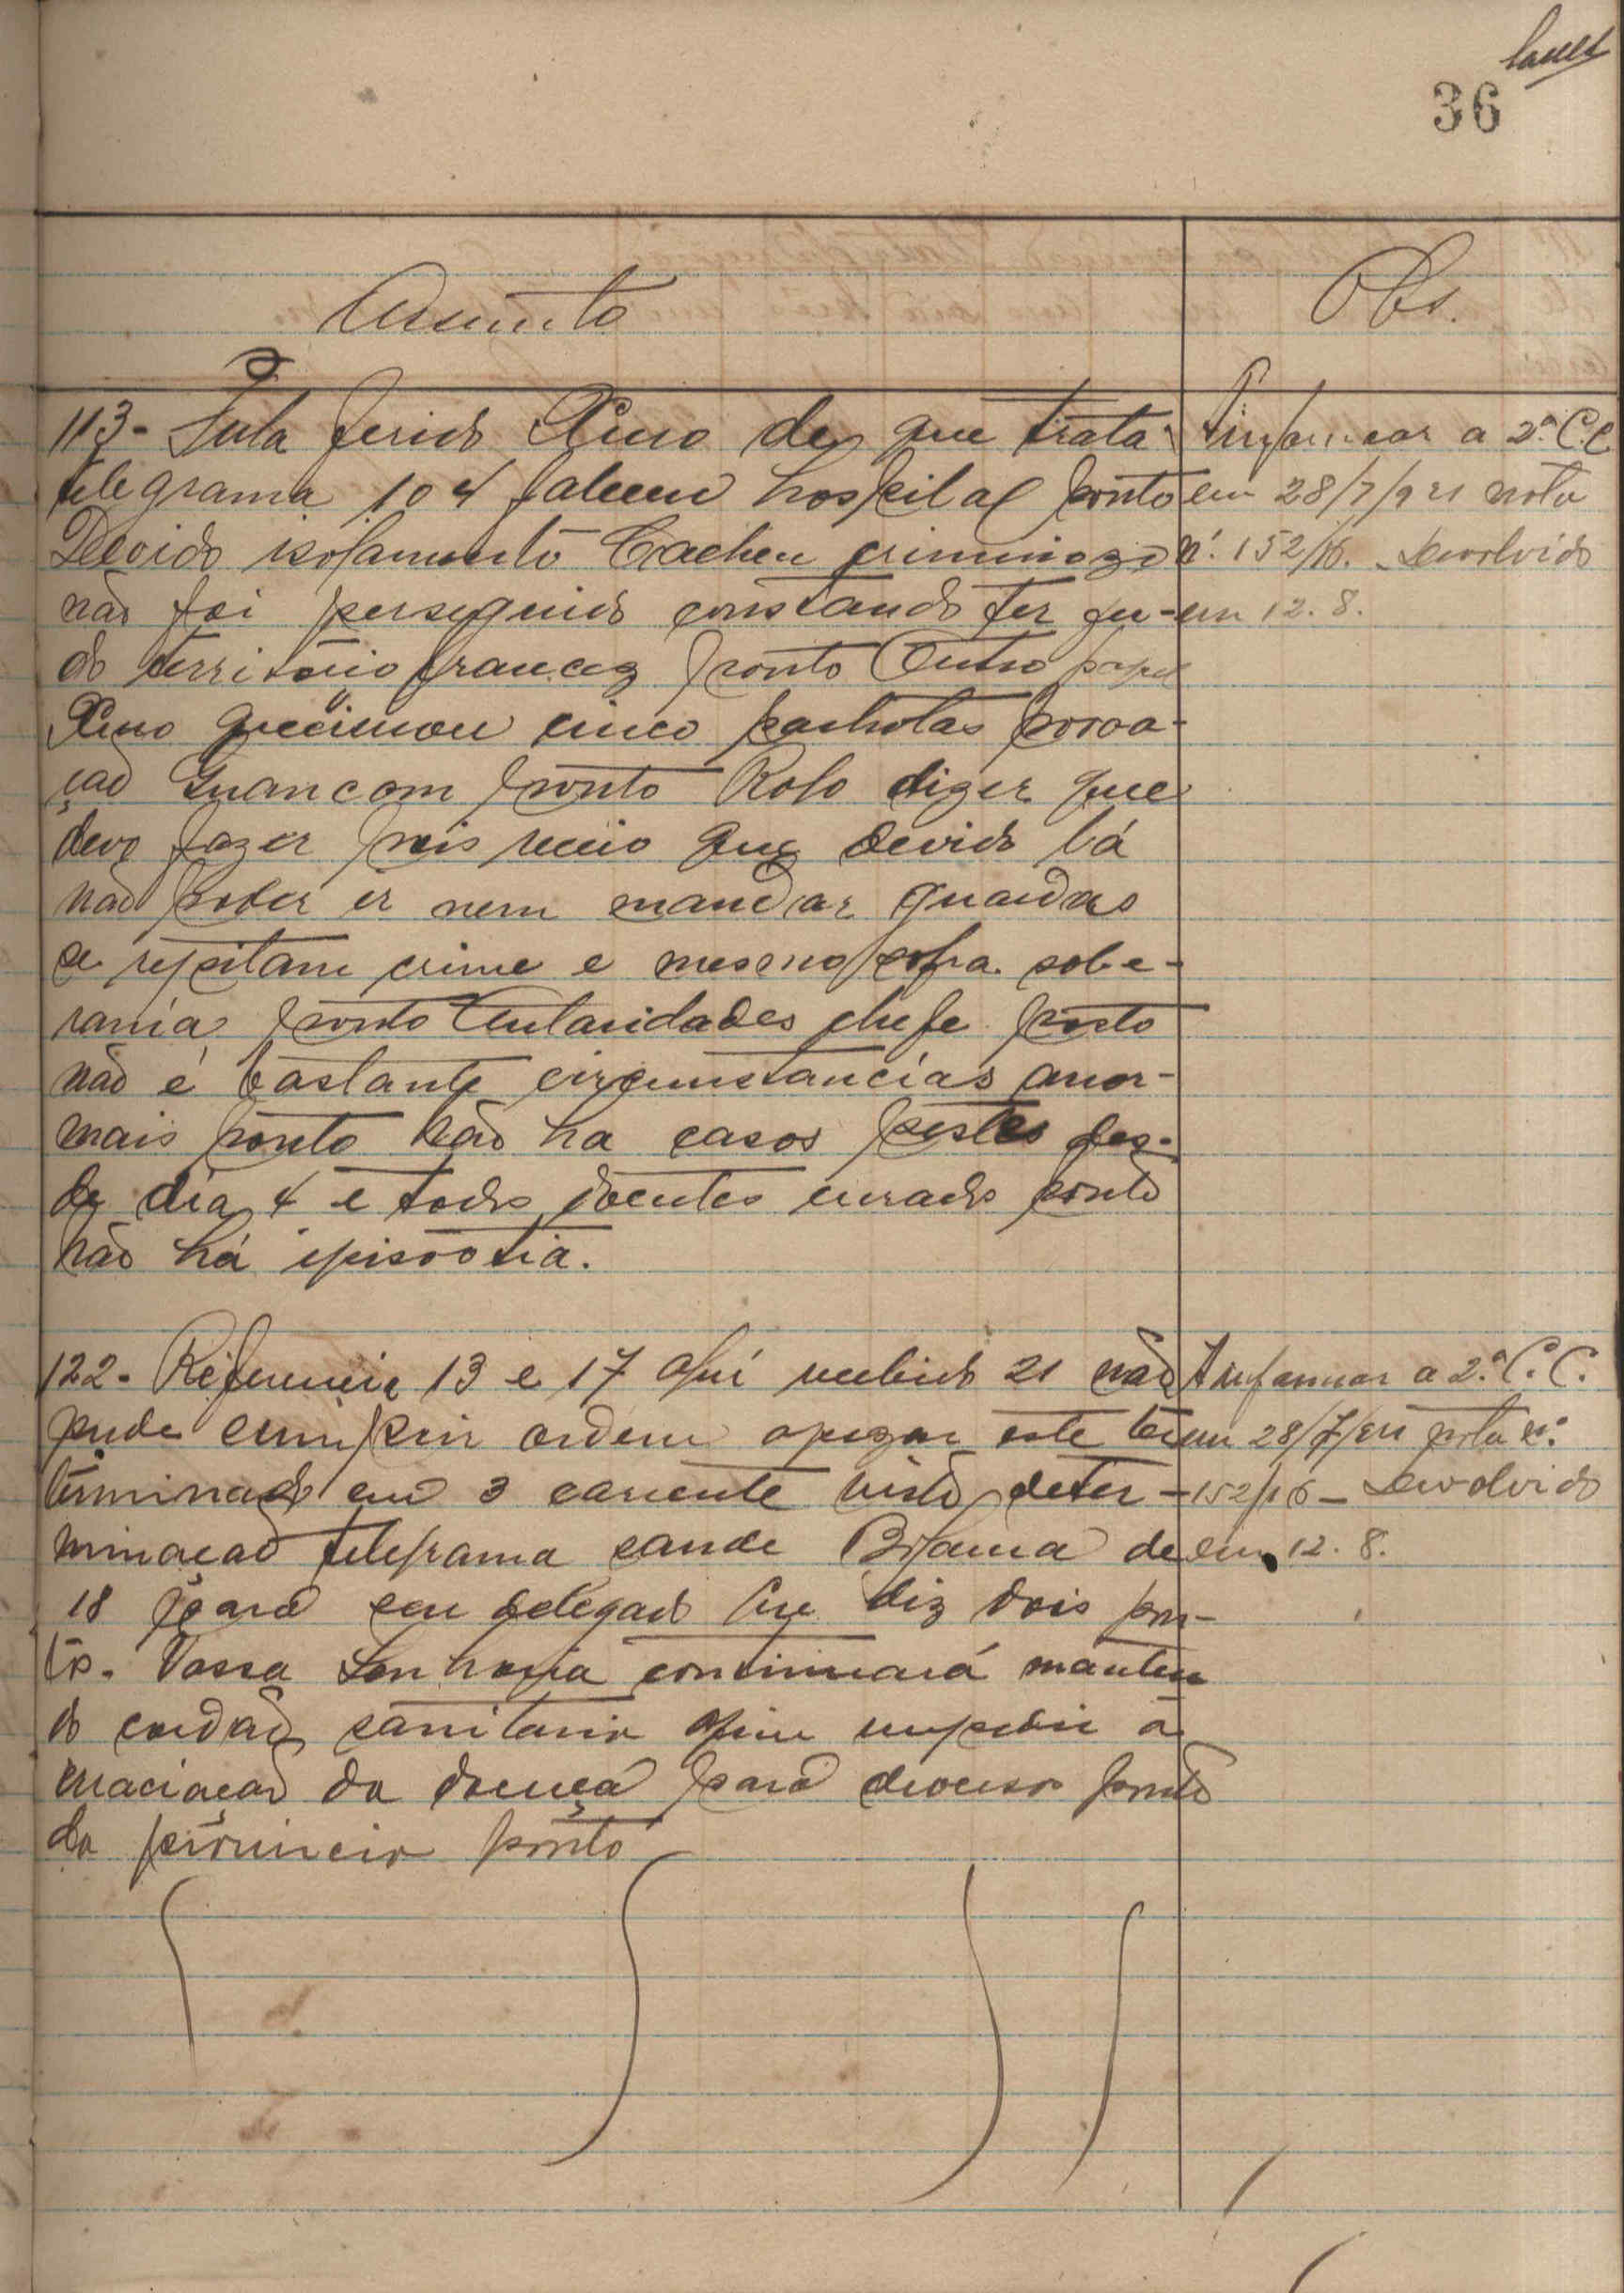 36
Assunto
Obs.
113- Fula ferido de que trata
telegrama 104 faleceu hospital ponto
Devido isolamento Cacheu criminozo
não foi perseguido constando ter fu-
do território francez ponto Outro
cinco ponto
ção ponto Rolo dizer que
devo fazer pois receio que devido lá
não poder ir nem mandar guardas
se repitam crime e mesmo sofra sobe-
rania ponto Autoridades chefe posto
não é bastante circunstancias anor-
mais ponto Não ha casos pestes des-
de dia 4 e todos doentes curados ponto
não há episootia.
A informar a 2ª C.C.
em 28/7/921 nota
nº 152/16. Devolvido
em 12.8.
122- Referencia 13 e 17 aqui recebido 21 não
pude cumprir ordem apezar este ter
terminado em 3 corrente visto deter-
minação telegrama saude Bolama de
18 para seu delegado que diz dois pon-
tos. Vossa Senhoria continuará manten
do cordão sanitario afim impedir a
da doença para diversos ponto
da provincia ponto
A informar a 2ª C.C.
em 28/7/921 nota nº
152/16 - Devolvido
em 12.8.